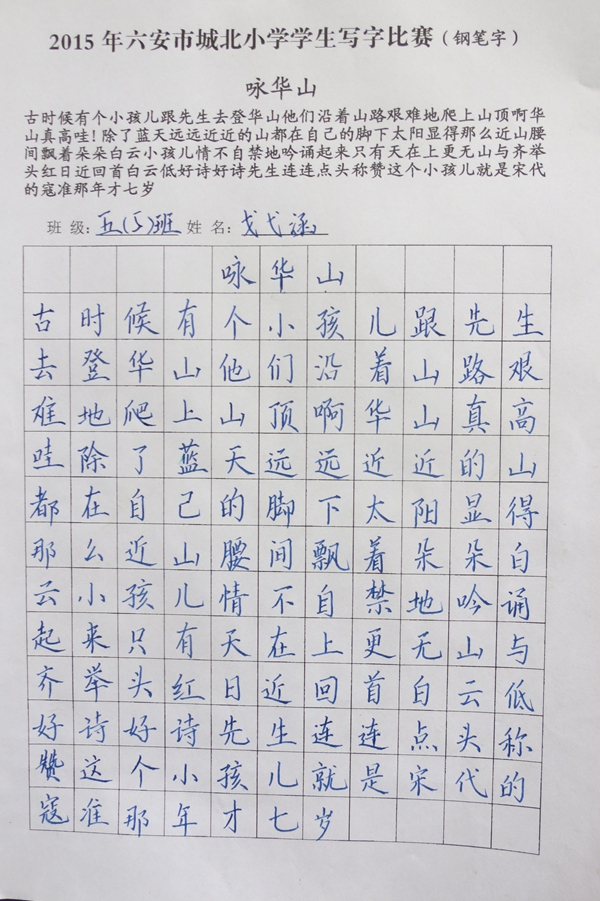 2015年六安市城北小学学生写字比赛(钢笔字)
咏华山
古时候有个小孩儿跟先生去登华山他们沿着山路艰难地爬上山顶啊华
山真高哇!除了蓝天远远近近的山都在自己的脚下太阳显得那么近山腰
间飘着朵朵白云小孩儿情不自禁地吟诵起来只有天在上更无山与齐举
头红日近回首白云低好诗好诗先生连连点头称赞这个小孩儿就是宋代
的寇准那年才七岁
班级:五(5)班 姓名:戈弋涵
咏华山
古时候有个小孩儿跟先生
去登华山他们沿着山路艰
难地爬上山顶啊华山真高
哇除了蓝天远远近近的山
都在自己的脚下太阳显得
那么近山腰间飘着朵朵白
云小孩儿情不自禁地吟诵
起来只有天在上更无山与
齐举头红日近回首白云低
好诗好诗先生连连点头称
赞这个小孩儿就是宋代的
寇准那年才七岁